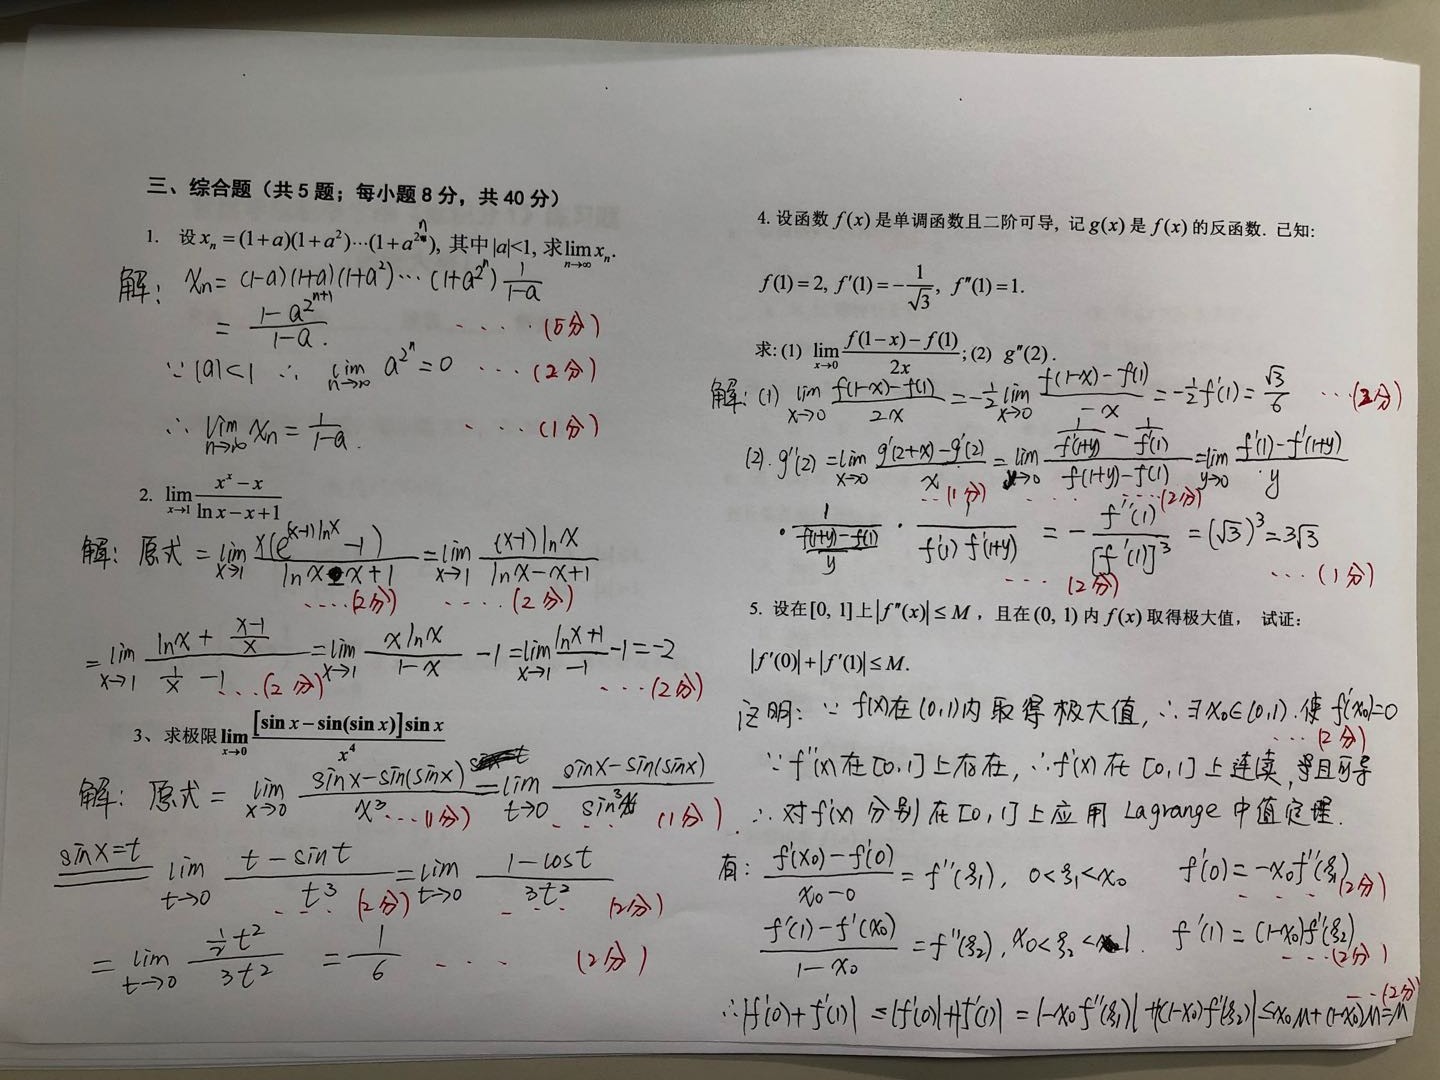 三、综合题（共5题；每小题8分，共40分）
1. 设 xₙ = (1+a)(1+a²)···(1+a^(2^n)), 其中|a|<1, 求 lim_{n→∞} xₙ.
解: xₙ = (1-a)(1+a)(1+a²)···(1+a^(2^n)) 1/(1-a)
= (1-a^(2^(n+1)))/(1-a). ····(5分)
∵ |a|<1 ∴ lim_{n→∞} a^(2^n) = 0 ···(2分)
∴ lim_{n→∞} xₙ = 1/(1-a). ····(1分)
2. lim_{x→1} (x^x - x)/(ln x - x + 1)
解: 原式 = lim_{x→1} x(e^((x-1)lnx) - 1)/(lnx-x+1) = lim_{x→1} (x-1)lnx/(lnx-x+1)
····(2分) ····(2分)
= lim_{x→1} (lnx + (x-1)/x)/(1/x - 1) = lim_{x→1} xlnx/(1-x) - 1 = lim_{x→1} (lnx+1)/(-1) - 1 = -2
···(2分) ···(2分)
3、求极限 lim_{x→0} [sin x - sin(sin x)] sin x / x⁴
解: 原式 = lim_{x→0} (sinx - sin(sinx))/x³ = lim_{t→0} (sinx - sin(sinx))/sin³x
···(1分) ···(1分)
sinx=t lim_{t→0} (t - sint)/t³ = lim_{t→0} (1-cost)/3t²
···(2分) ···(2分)
= lim_{t→0} (½t²)/(3t²) = 1/6 ····(2分)
4. 设函数 f(x) 是单调函数且二阶可导, 记 g(x) 是 f(x) 的反函数. 已知:
f(1) = 2, f′(1) = -1/√3, f″(1) = 1.
求: (1) lim_{x→0} (f(1-x) - f(1))/2x; (2) g″(2).
解: (1) lim_{x→0} (f(1-x)-f(1))/2x = -½ lim_{x→0} (f(1-x)-f(1))/(-x) = -½ f′(1) = √3/6 ···(2分)
(2). g″(2) = lim_{x→0} (g′(2+x)-g′(2))/x = lim_{y→0} (1/f′(1+y) - 1/f′(1))/(f(1+y)-f(1)) = lim_{y→0} (f′(1)-f′(1+y))/y
···(1分) ····(2分)
· 1/((f(1+y)-f(1))/y) · 1/(f′(1)f′(1+y)) = -f″(1)/[f′(1)]³ = (√3)³ = 3√3
····(2分) ···(1分)
5. 设在[0, 1]上|f″(x)| ≤ M，且在(0, 1)内 f(x) 取得极大值， 试证:
|f′(0)|+|f′(1)| ≤ M.
证明: ∵ f(x)在(0,1)内取得极大值, ∴ ∃x₀∈(0,1). 使 f′(x₀)=0
···(2分)
∵ f″(x)在[0,1]上存在, ∴ f′(x)在[0,1]上连续, 且可导
∴ 对f′(x)分别在[0,1]上应用Lagrange中值定理.
有: (f′(x₀)-f′(0))/(x₀-0) = f″(ξ₁), 0<ξ₁<x₀ f′(0) = -x₀f″(ξ₁)
···(2分)
(f′(1)-f′(x₀))/(1-x₀) = f″(ξ₂), x₀<ξ₂<1. f′(1) = (1-x₀)f″(ξ₂)
····(2分)
∴|f′(0)+f′(1)| ≤ |f′(0)|+|f′(1)| = |-x₀f″(ξ₁)|+|(1-x₀)f″(ξ₂)| ≤ x₀M+(1-x₀)M=M
···(2分)